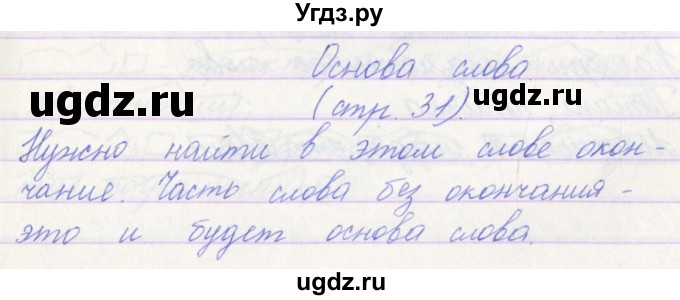 Угдз.ру
Основа слова.
ugdz.ru (стр. 31). ugdz.ru
Нужно найти в этом слове окон-
чание. Часть слова без окончания -
это и будет основа слова.
ugdz.ru